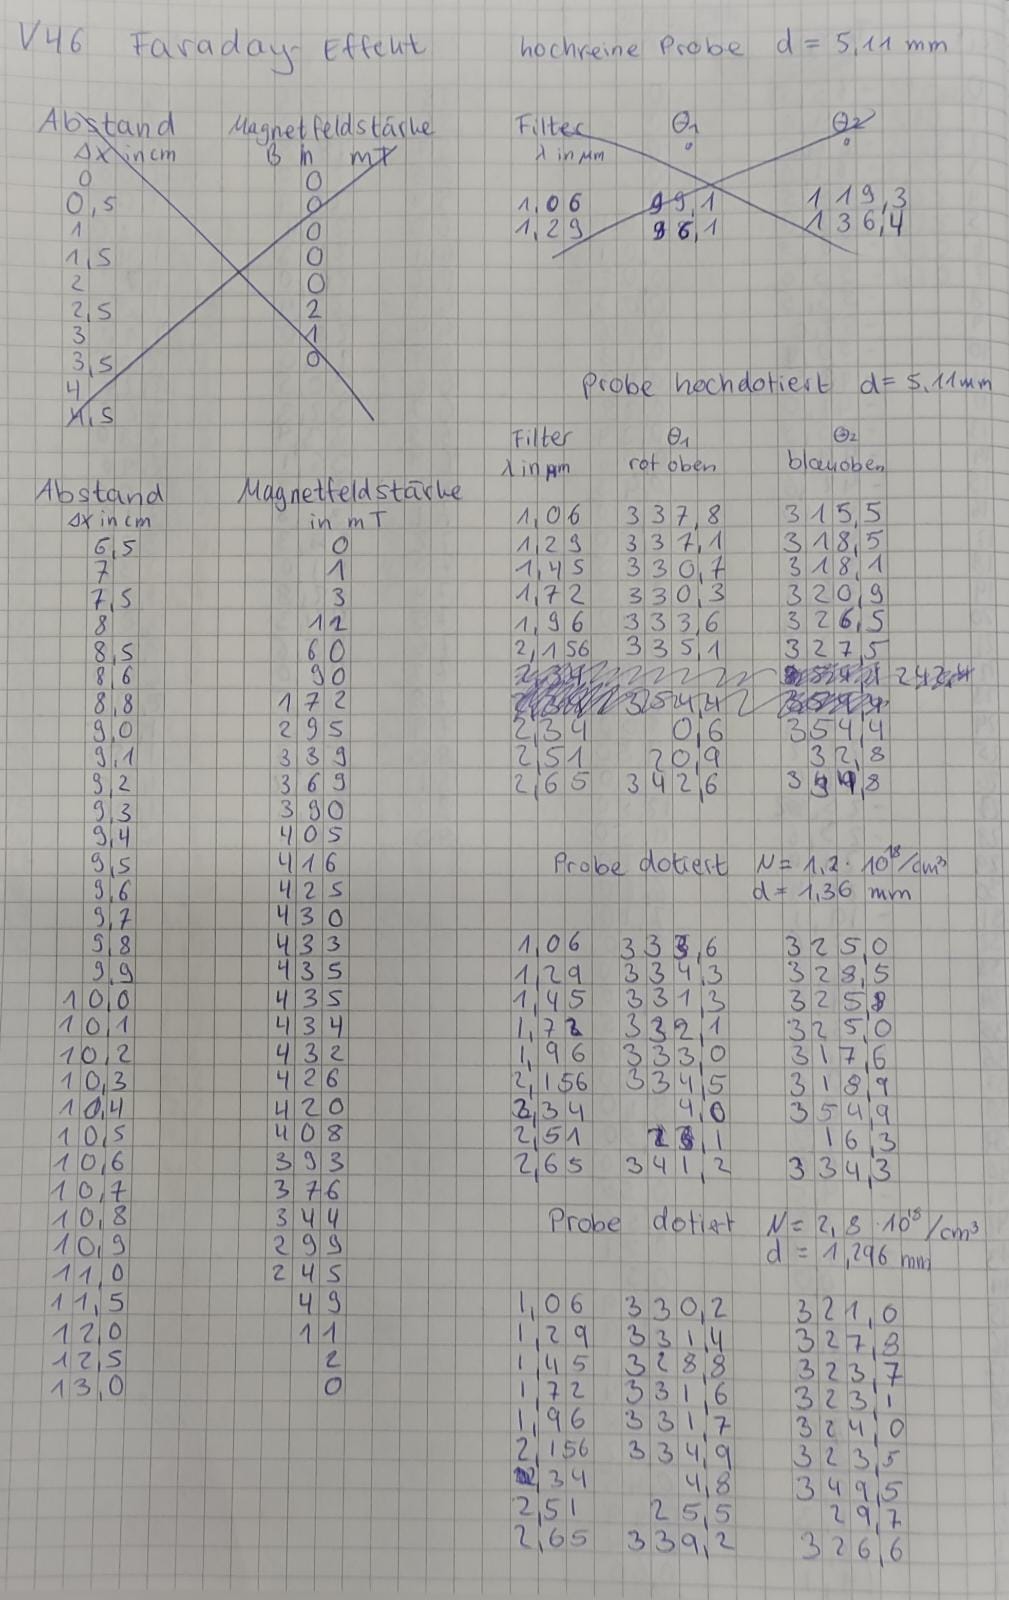 V46 Faraday Effekt
hochreine Probe d = 5,11 mm
Abstand Magnetfeldstärke
Δx in cm B in mT
0 0
0,5 0
1 0
1,5 0
2 0
2,5 2
3 1
3,5 0
4
4,5
Filter θ1 θ2
λ in µm ° °
1,06 99,1 119,3
1,29 96,1 136,4
Abstand Magnetfeldstärke
Δx in cm in mT
6,5 0
7 1
7,5 3
8 12
8,5 60
8,6 90
8,8 172
9,0 295
9,1 339
9,2 369
9,3 390
9,4 405
9,5 416
9,6 425
9,7 430
9,8 433
9,9 435
10,0 435
10,1 434
10,2 432
10,3 426
10,4 420
10,5 408
10,6 393
10,7 376
10,8 344
10,9 299
11,0 245
11,5 49
12,0 11
12,5 2
13,0 0
Probe hochdotiert d = 5,11 mm
Filter θ1 θ2
λ in µm rot oben blau oben
1,06 337,8 315,5
1,29 337,1 318,5
1,45 330,7 318,1
1,72 330,3 320,9
1,96 333,6 326,5
2,156 335,1 327,5
2,34 0,6 354,4
2,51 20,9 32,8
2,65 342,6
Probe dotiert N = 1,2 · 10^18/cm³
d = 1,36 mm
1,06 333,6 325,0
1,29 334,3 328,5
1,45 331,3 325,8
1,72 332,1 325,0
1,96 333,0 317,6
2,156 334,5 318,9
2,34 4,0 354,9
2,51 16,3
2,65 341,2 334,3
Probe dotiert N = 2,8 · 10^18/cm³
d = 1,296 mm
1,06 330,2 321,0
1,29 331,4 327,8
1,45 328,8 323,7
1,72 331,6 323,1
1,96 331,7 324,0
2,156 334,9 323,5
2,34 4,8 349,5
2,51 25,5 29,7
2,65 339,2 326,6